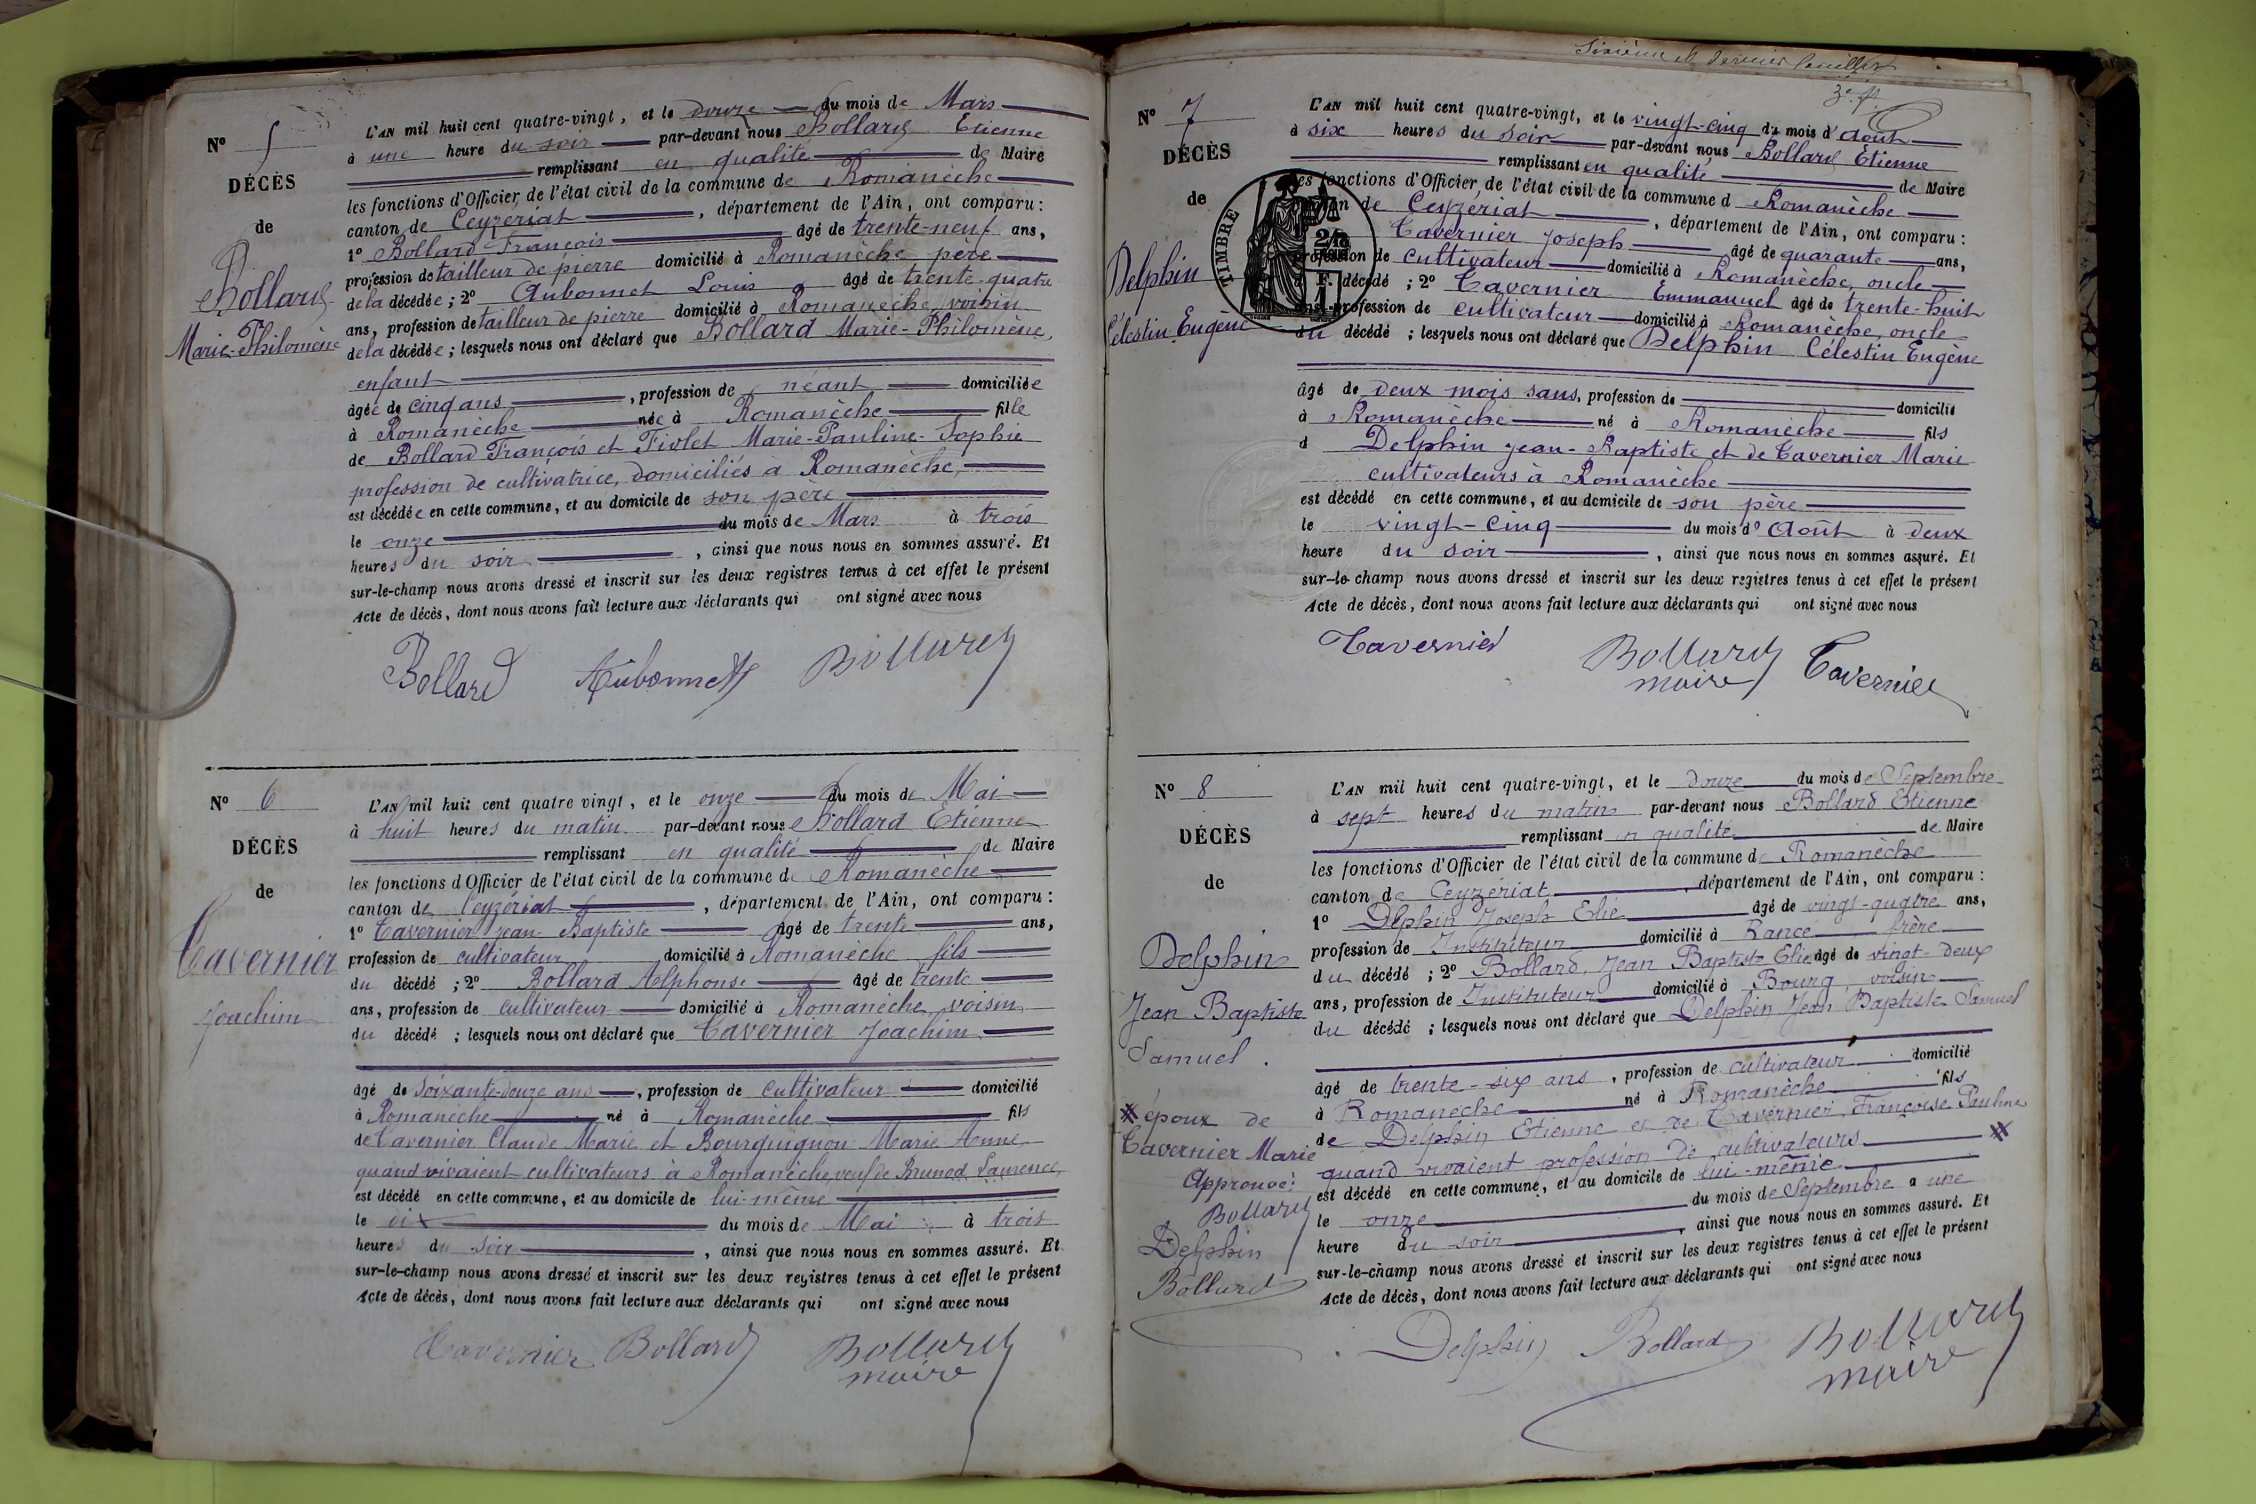 N° 5
DÉCÈS
de
Bollard
Marie-Philomène
L'AN mil huit cent quatre-vingt, et le douze du mois de Mars
à une heure du soir par-devant nous Bollard Etienne
remplissant en qualité de Maire
les fonctions d'Officier de l'état civil de la commune de Romanèche
canton de Ceyzériat, département de l'Ain, ont comparu :
1° Bollard François âgé de trente-neuf ans,
profession de tailleur de pierre domicilié à Romanèche père
de la décédée ; 2° Aubonnet Louis âgé de trente-quatre
ans, profession de tailleur de pierre domicilié à Romanèche, voisin
de la décédée ; lesquels nous ont déclaré que Bollard Marie-Philomène,
enfant
âgée de cinq ans, profession de néant domiciliée
à Romanèche née à Romanèche fille
de Bollard François et Fiolet Marie-Pauline-Sophie
profession de cultivatrice, domiciliés à Romanèche,
est décédée en cette commune, et au domicile de son père
le onze du mois de Mars à trois
heures du soir, ainsi que nous nous en sommes assuré. Et
sur-le-champ nous avons dressé et inscrit sur les deux registres tenus à cet effet le présent
Acte de décès, dont nous avons fait lecture aux déclarants qui ont signé avec nous
Bollard Aubonnet Bollard
N° 6
DÉCÈS
de
Tavernier
Joachim
L'AN mil huit cent quatre vingt, et le onze du mois de Mai
à huit heures du matin par-devant nous Bollard Etienne
remplissant en qualité de Maire
les fonctions d'Officier de l'état civil de la commune de Romanèche
canton de Ceyzériat, département de l'Ain, ont comparu :
1° Tavernier Jean-Baptiste âgé de trente ans,
profession de cultivateur domicilié à Romanèche fils
du décédé ; 2° Bollard Alphonse âgé de trente
ans, profession de cultivateur domicilié à Romanèche, voisin
du décédé ; lesquels nous ont déclaré que Tavernier Joachim
âgé de soixante-douze ans, profession de cultivateur domicilié
à Romanèche né à Romanèche fils
de Tavernier Claude Marie et Bourguignon Marie Anne
quand vivaient cultivateurs à Romanèche, veuf de Brunod Laurence,
est décédé en cette commune, et au domicile de lui-même
le dix du mois de Mai à trois
heures du soir, ainsi que nous nous en sommes assuré. Et
sur-le-champ nous avons dressé et inscrit sur les deux registres tenus à cet effet le présent
Acte de décès, dont nous avons fait lecture aux déclarants qui ont signé avec nous
Tavernier Bollard Bollard
maire
Sixième et dernier feuillet
N° 7
DÉCÈS
de
Delphin
Célestin Eugène
TIMBRE
L'AN mil huit cent quatre-vingt, et le vingt-cinq du mois d'Août
à six heures du soir par-devant nous Bollard Etienne
remplissant en qualité de Maire
les fonctions d'Officier de l'état civil de la commune d Romanèche
canton de Ceyzériat, département de l'Ain, ont comparu :
Tavernier Joseph âgé de quarante ans,
profession de cultivateur domicilié à Romanèche, oncle
décédé ; 2° Tavernier Emmanuel âgé de trente-huit
ans, profession de cultivateur domicilié à Romanèche, oncle
du décédé ; lesquels nous ont déclaré que Delphin Célestin Eugène
âgé de deux mois sans, profession de domicilié
à Romanèche né à Romanèche fils
d Delphin Jean-Baptiste et de Tavernier Marie
cultivateurs à Romanèche
est décédé en cette commune, et au domicile de son père
le vingt-cinq du mois d'Août à deux
heure du soir, ainsi que nous nous en sommes assuré. Et
sur-le-champ nous avons dressé et inscrit sur les deux registres tenus à cet effet le présent
Acte de décès, dont nous avons fait lecture aux déclarants qui ont signé avec nous
Tavernier Bollard Tavernier
maire
N° 8
DÉCÈS
de
Delphin
Jean Baptiste
Samuel.
# époux de
Tavernier Marie
Approuvé:
Bollard
Delphin
Bollard
L'AN mil huit cent quatre-vingt, et le douze du mois de Septembre
à sept heures du matin par-devant nous Bollard Etienne
remplissant en qualité de Maire
les fonctions d'Officier de l'état civil de la commune de Romanèche
canton de Ceyzériat, département de l'Ain, ont comparu :
1° Delphin Joseph Elie âgé de vingt-quatre ans,
profession de Instituteur domicilié à Rance frère
du décédé ; 2° Bollard, Jean Baptiste Elie âgé de vingt-deux
ans, profession de Instituteur domicilié à Bourg, voisin
du décédé ; lesquels nous ont déclaré que Delphin Jean Baptiste Samuel
âgé de trente-six ans, profession de cultivateur domicilié
à Romanèche né à Romanèche fils
de Delphin Etienne et de Tavernier, Françoise Pauline
quand vivaient profession de cultivateurs #
est décédé en cette commune, et au domicile de lui-même
le onze du mois de Septembre à une
heure du soir, ainsi que nous nous en sommes assuré. Et
sur-le-champ nous avons dressé et inscrit sur les deux registres tenus à cet effet le présent
Acte de décès, dont nous avons fait lecture aux déclarants qui ont signé avec nous
Delphin Bollard Bollard
maire